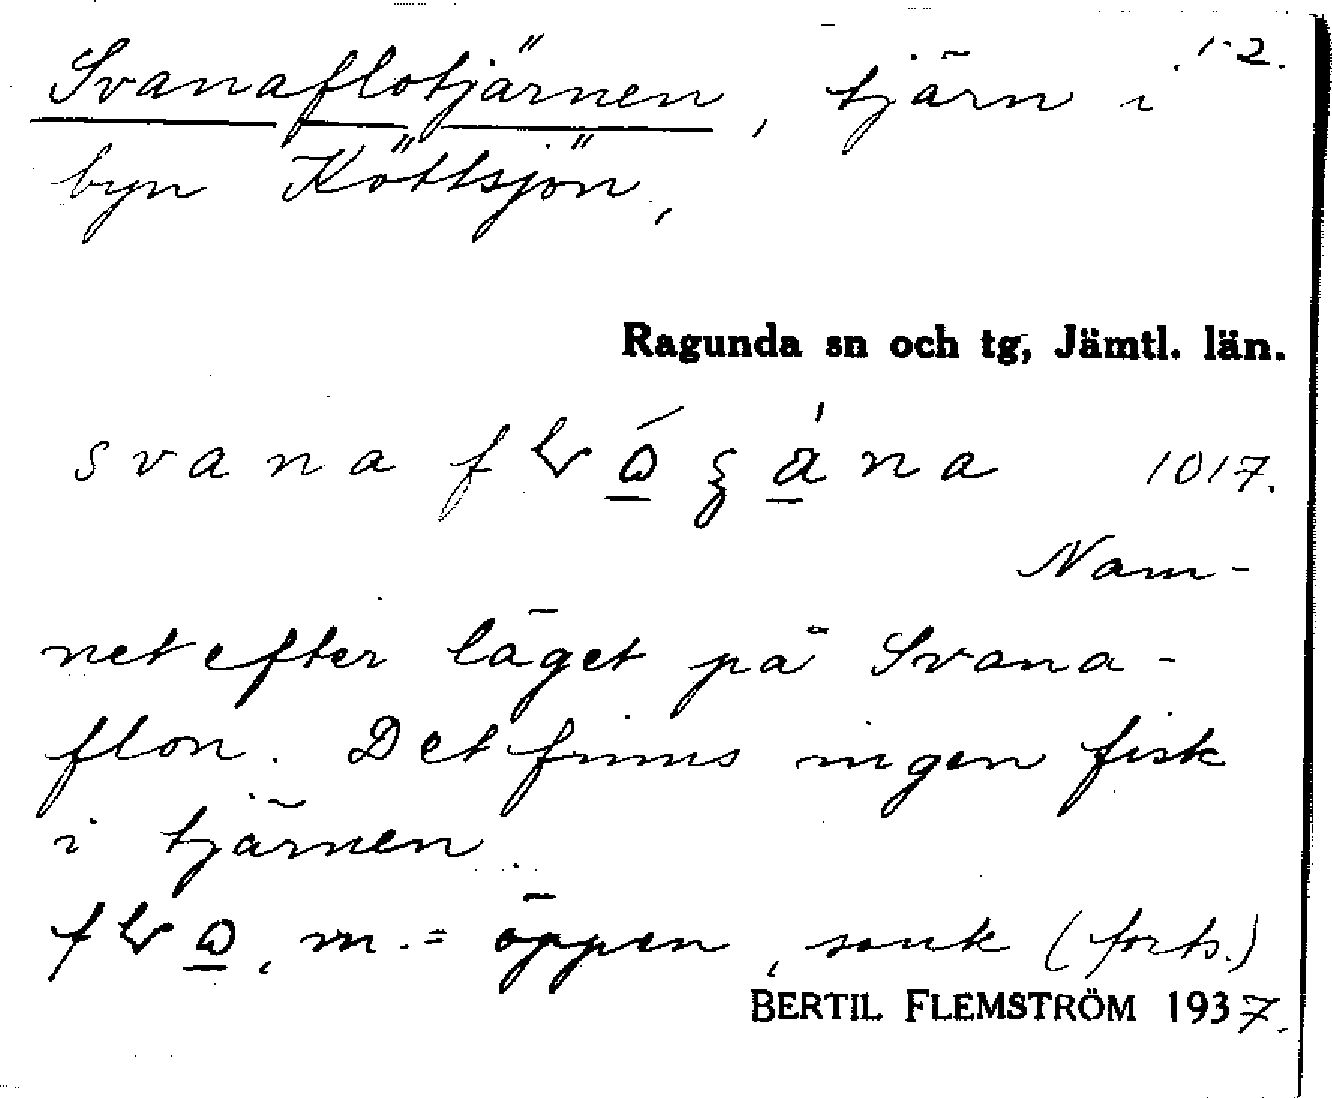 1-2.
Svanaflotjärnen, tjärn i
byn Köttsjön,
Ragunda sn och tg, Jämtl. län.
svana 1017.
Nam-
net efter läget på Svana-
flon. Det finns ingen fisk
i tjärnen.
m. = öppen, sank (forts.)
BERTIL FLEMSTRÖM 1937.